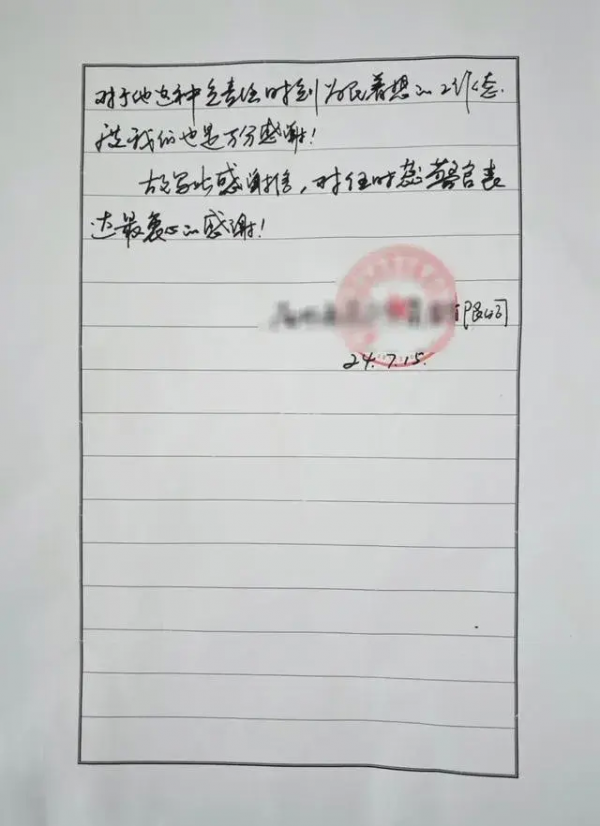 对于他这种负责任时刻为民着想的工作态
度我们也是万分感谢!
故写此感谢信，对任时懿警官表
达最衷心的感谢!
限公司
24.7.15.